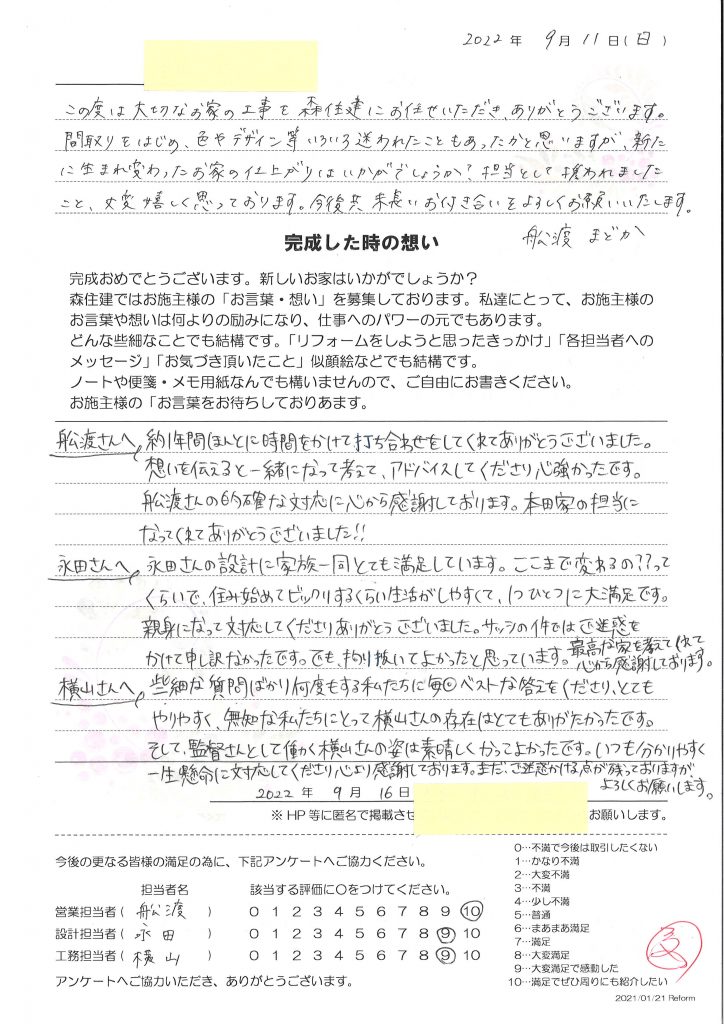 2022年 9月 11日(日)
この度は大切なお家の工事を森住建にお任せいただき、ありがとうございます。
間取りをはじめ、色やデザイン等いろいろ迷われたこともあったかと思いますが、新た
に生まれ変わったお家の仕上がりはいかがでしょうか?担当として携われました
こと、大変嬉しく思っております。今後共末長いお付き合いをよろしくお願いいたします。
舩渡 まどか
完成した時の想い
完成おめでとうございます。新しいお家はいかがでしょうか?
森住建ではお施主様の「お言葉・想い」を募集しております。私達にとって、お施主様の
お言葉や想いは何よりの励みになり、仕事へのパワーの元でもあります。
どんな些細なことでも結構です。「リフォームをしようと思ったきっかけ」「各担当者への
メッセージ」「お気づき頂いたこと」似顔絵などでも結構です。
ノートや便箋・メモ用紙なんでも構いませんので、ご自由にお書きください。
お施主様の「お言葉をお待ちしておりあます。
舩渡さんへ 約1年間ほんとに時間をかけて打ち合わせをしてくれてありがとうございました。
想いを伝えると一緒になって考えて、アドバイスしてくださり心強かったです。
舩渡さんの的確な対応に心から感謝しております。本田家の担当に
なってくれてありがとうございました!!
永田さんへ 永田さんの設計に家族一同とても満足しています。ここまで変わるの??って
くらいで、住み始めてビックリするくらい生活がしやすくて、1つひとつに大満足です。
親身になって対応してくださりありがとうございました。サッシの件ではご迷惑を
かけて申し訳なかったです。でも、拘り抜いてよかったと思っています。最高な家を考えてくれて
心から感謝しております。
横山さんへ 些細な質問ばかり何度もする私たちに毎回ベストな答えをくださり、とても
やりやすく、無知な私たちにとって横山さんの存在はとてもありがたかったです。
そして、監督さんとして働く横山さんの姿は素晴しくかっこよかったです。いつも分かりやすく
一生懸命に対応してくださり心より感謝しております。まだ、ご迷惑かける点が残っておりますが
よろしくお願いします。
2022年 9月 16日
※HP等に匿名で掲載させ お願いします。
今後の更なる皆様の満足の為に、下記アンケートへご協力ください。
担当者名 該当する評価に○をつけてください。
営業担当者( 舩渡 ) 0 1 2 3 4 5 6 7 8 9 10
設計担当者( 永田 ) 0 1 2 3 4 5 6 7 8 9 10
工務担当者( 横山 ) 0 1 2 3 4 5 6 7 8 9 10
アンケートへご協力いただき、ありがとうございます。
0…不満で今後は取引したくない
1…かなり不満
2…大変不満
3…不満
4…少し不満
5…普通
6…まあまあ満足
7…満足
8…大変満足
9…大変満足で感動した
10…満足でぜひ周りにも紹介したい
2021/01/21 Reform